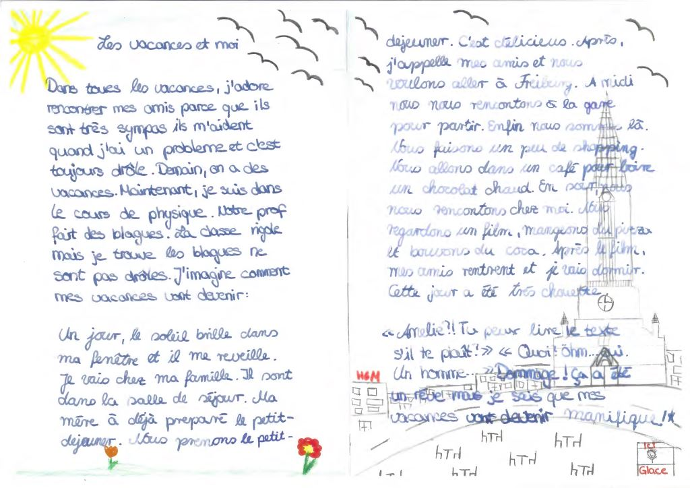 Les vacances et moi
Dans toues les vacances, j'adore
rencontrer mes amis parce que ils
sont très sympas ils m'aident
quand j'ai un probleme et c'est
toujours drôle. Demain, on a des
vacances. Maintenant, je suis dans
le cours de physique. Notre prof
fait des blagues. La classe rigole
mais je trouve les blagues ne
sont pas drôles. J'imagine comment
mes vacances vont devenir:
Un jour, le soleil brille dans
ma fenêtre et il me reveille.
Je vais chez ma famille. Il sont
dans la salle de séjour. Ma
mère à déjà preparé le petit-
dejeuner. Nous prenons le petit-
dejeuner. C'est délicieus. Après,
j'appelle mes amis et nous
voulons aller à Fribourg. A midi
nous nous rencontons à la gare
pour partir. Enfin nous sommes là.
Nous faisons un peu de shopping.
Nous allons dans un café pour boire
un chocolat chaud. En soir, nous
nous rencontons chez moi. Nous
regardons un film, mangeons du pizza
et bouvons du coca. Après le film,
mes amis rentrent et je vais dormir.
Cette jour a été très chouette.
« Amelie?! Tu peux lire le texte
s'il te plaît!» « Quoi? Öhm... oui.
Un homme...» Dommage! Ça a été
un rêve! mais je sais que mes
vacances vont devenir manifique!
H&M
hTH hTH hTH
hTH hTH hTH
Ici
Glace